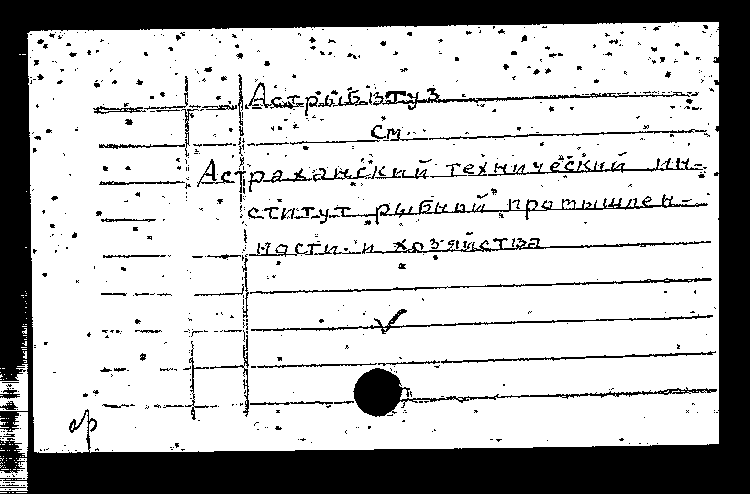 Астрыбвтуз
см
Астраханский технический ин-
ститут рыбной промышлен-
ности и хозяйства
ар